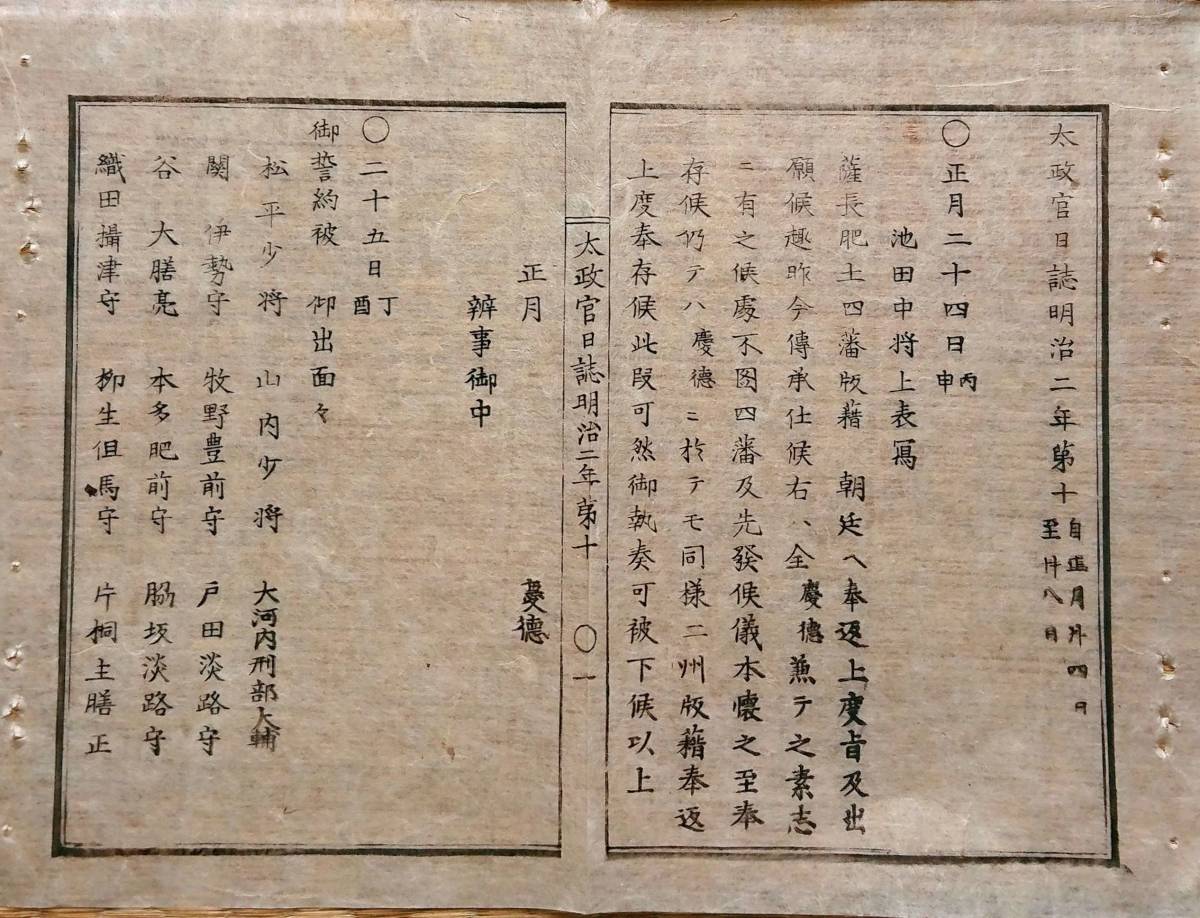 太政官日誌明治二年第十 自正月廿四日 至同廿八日
〇正月二十四日 丙申
池田中将上表寫
薩長肥土四藩版藉 朝廷ヘ奉返上度旨及出
願候趣昨今傳承仕候右ハ全慶德兼テ之素志
ニ有之候處不图四藩及先發候儀本懷之至奉
存候仍テハ慶德ニ於テモ同様二州版藉奉返
上度奉存候此段可然御執奏可被下候以上
太政官日誌明治二年第十 〇一
正月 慶德
辧事御中
〇二十五日 丁酉
御誓約被 仰出面々
松平少将 山内少将 大河内刑部大輔
關伊勢守 牧野豊前守 戸田淡路守
谷大膳亮 本多肥前守 脇坂淡路守
織田攝津守 柳生但馬守 片桐主膳正